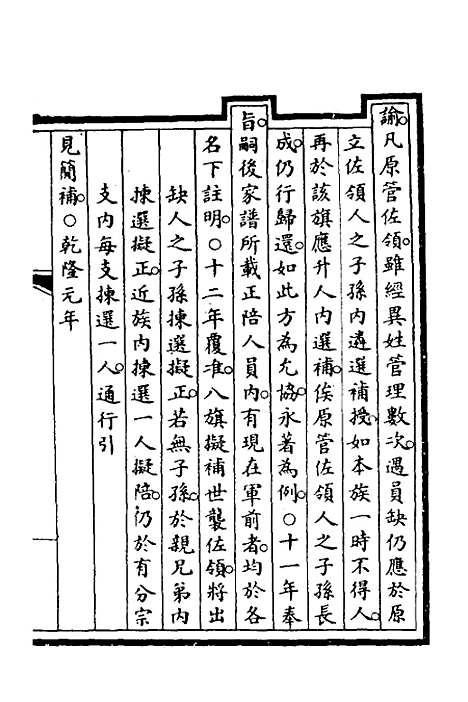 諭。凡原管佐領。雖經異姓管理數次。遇員缺仍應於原
立佐領人之子孫內遴選補授。如本族一時不得人。
再於該旗應升人內選補。俟原管佐領人之子孫長
成。仍行歸還。如此方為允協。永著為例。○十一年奉
旨。嗣後家譜所載正陪人員內。有現在軍前者。均於各
名下註明。○十二年覆准。八旗擬補世襲佐領。將出
缺人之子孫揀選擬正。若無子孫。於親兄弟內
揀選擬正。近族內揀選一人擬陪。仍於有分宗
支內每支揀選一人。通行引
見簡補。○乾隆元年